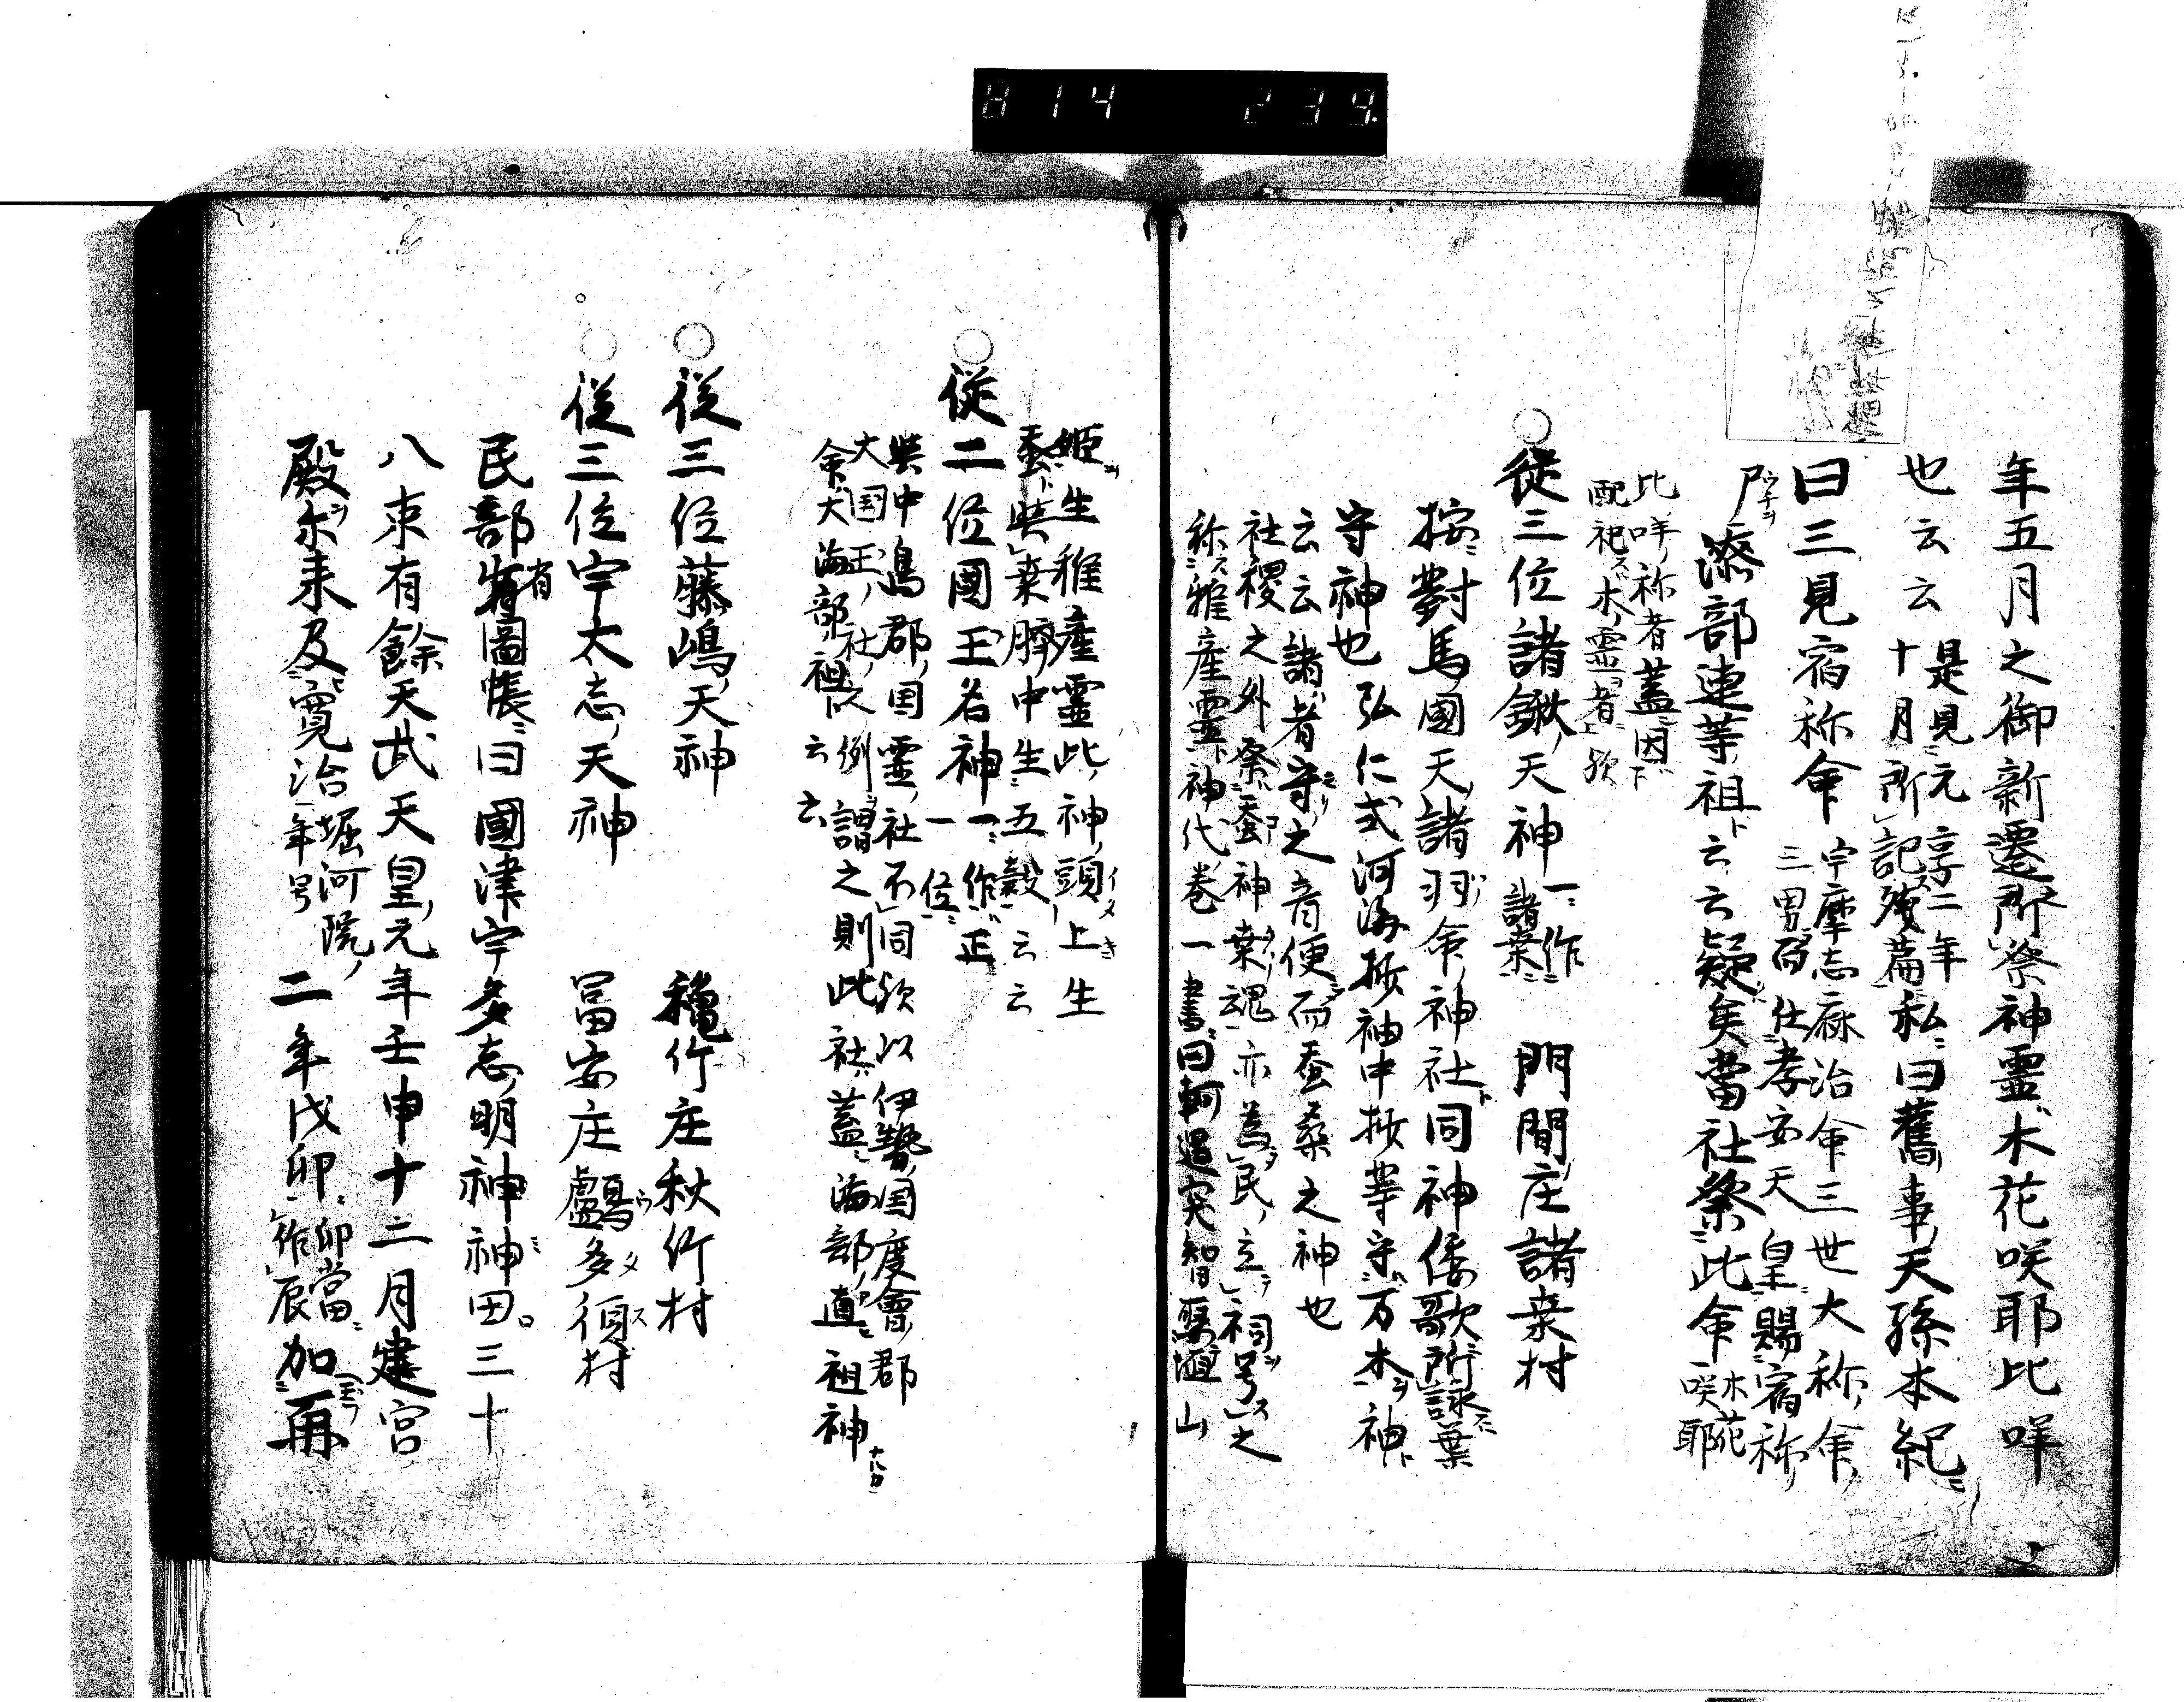 年五月之御新遷所祭神霊木花咲耶比咩
也云云 是見元享二年
十月所記残篇 私曰舊事天孫本紀
曰三見宿祢命 宇摩志麻治命三世大祢命
三男 仕孝安天皇賜宿祢
漆部連等祖云云疑矣當社祭此命 木花
咲耶
比咩称者蓋因
配祀木霊者歟
従三位諸鍬天神 一作
諸桒 門間庄諸桒村
按對馬國天諸羽命神社同神倭歌所詠葉
守神也弘仁式河海按袖中按等守万木神
云云諸者守之音便而蚕桑之神也
社稷之外祭蚕神桒魂亦為民立祠号之
称稚産霊神代巻一書曰軻遇突智娶埴山
姫生稚産霊此神頭上生
蚕與桒臍中生五穀云云
従二位國王名神 一作正
一位
與中嶋郡国霊社不同欤以伊勢国度會郡
大国玉社例謂之則此社蓋海部直祖神
命大海部祖云云
従三位藤嶋天神 穐竹庄秋竹村
従三位宇太志天神 冨安庄鸕多須村
民部省圖帳曰國津宇多志明神神田三十
八束有餘天武天皇元年壬申十二月建宮
殿尓来及寛治 堀河院
年号 二年戊卯 卯當
作辰 加再
8 1 4 2 3 9.